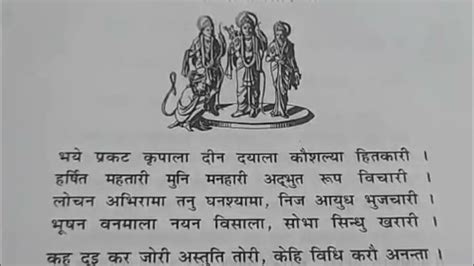 भये प्रकट कृपाला दीन दयाला कौशल्या हितकारी ।
हर्षित महतारी मुनि मनहारी अद्‌भुत रूप विचारी ।
लोचन अभिरामा तनु घनश्यामा, निज आयुध भुजचारी ।
भूषन वनमाला नयन विसाला, सोभा सिन्धु खरारी ।
कह दुइ कर जोरी अस्तुति तोरी, केहि विधि करौ अनन्ता ।